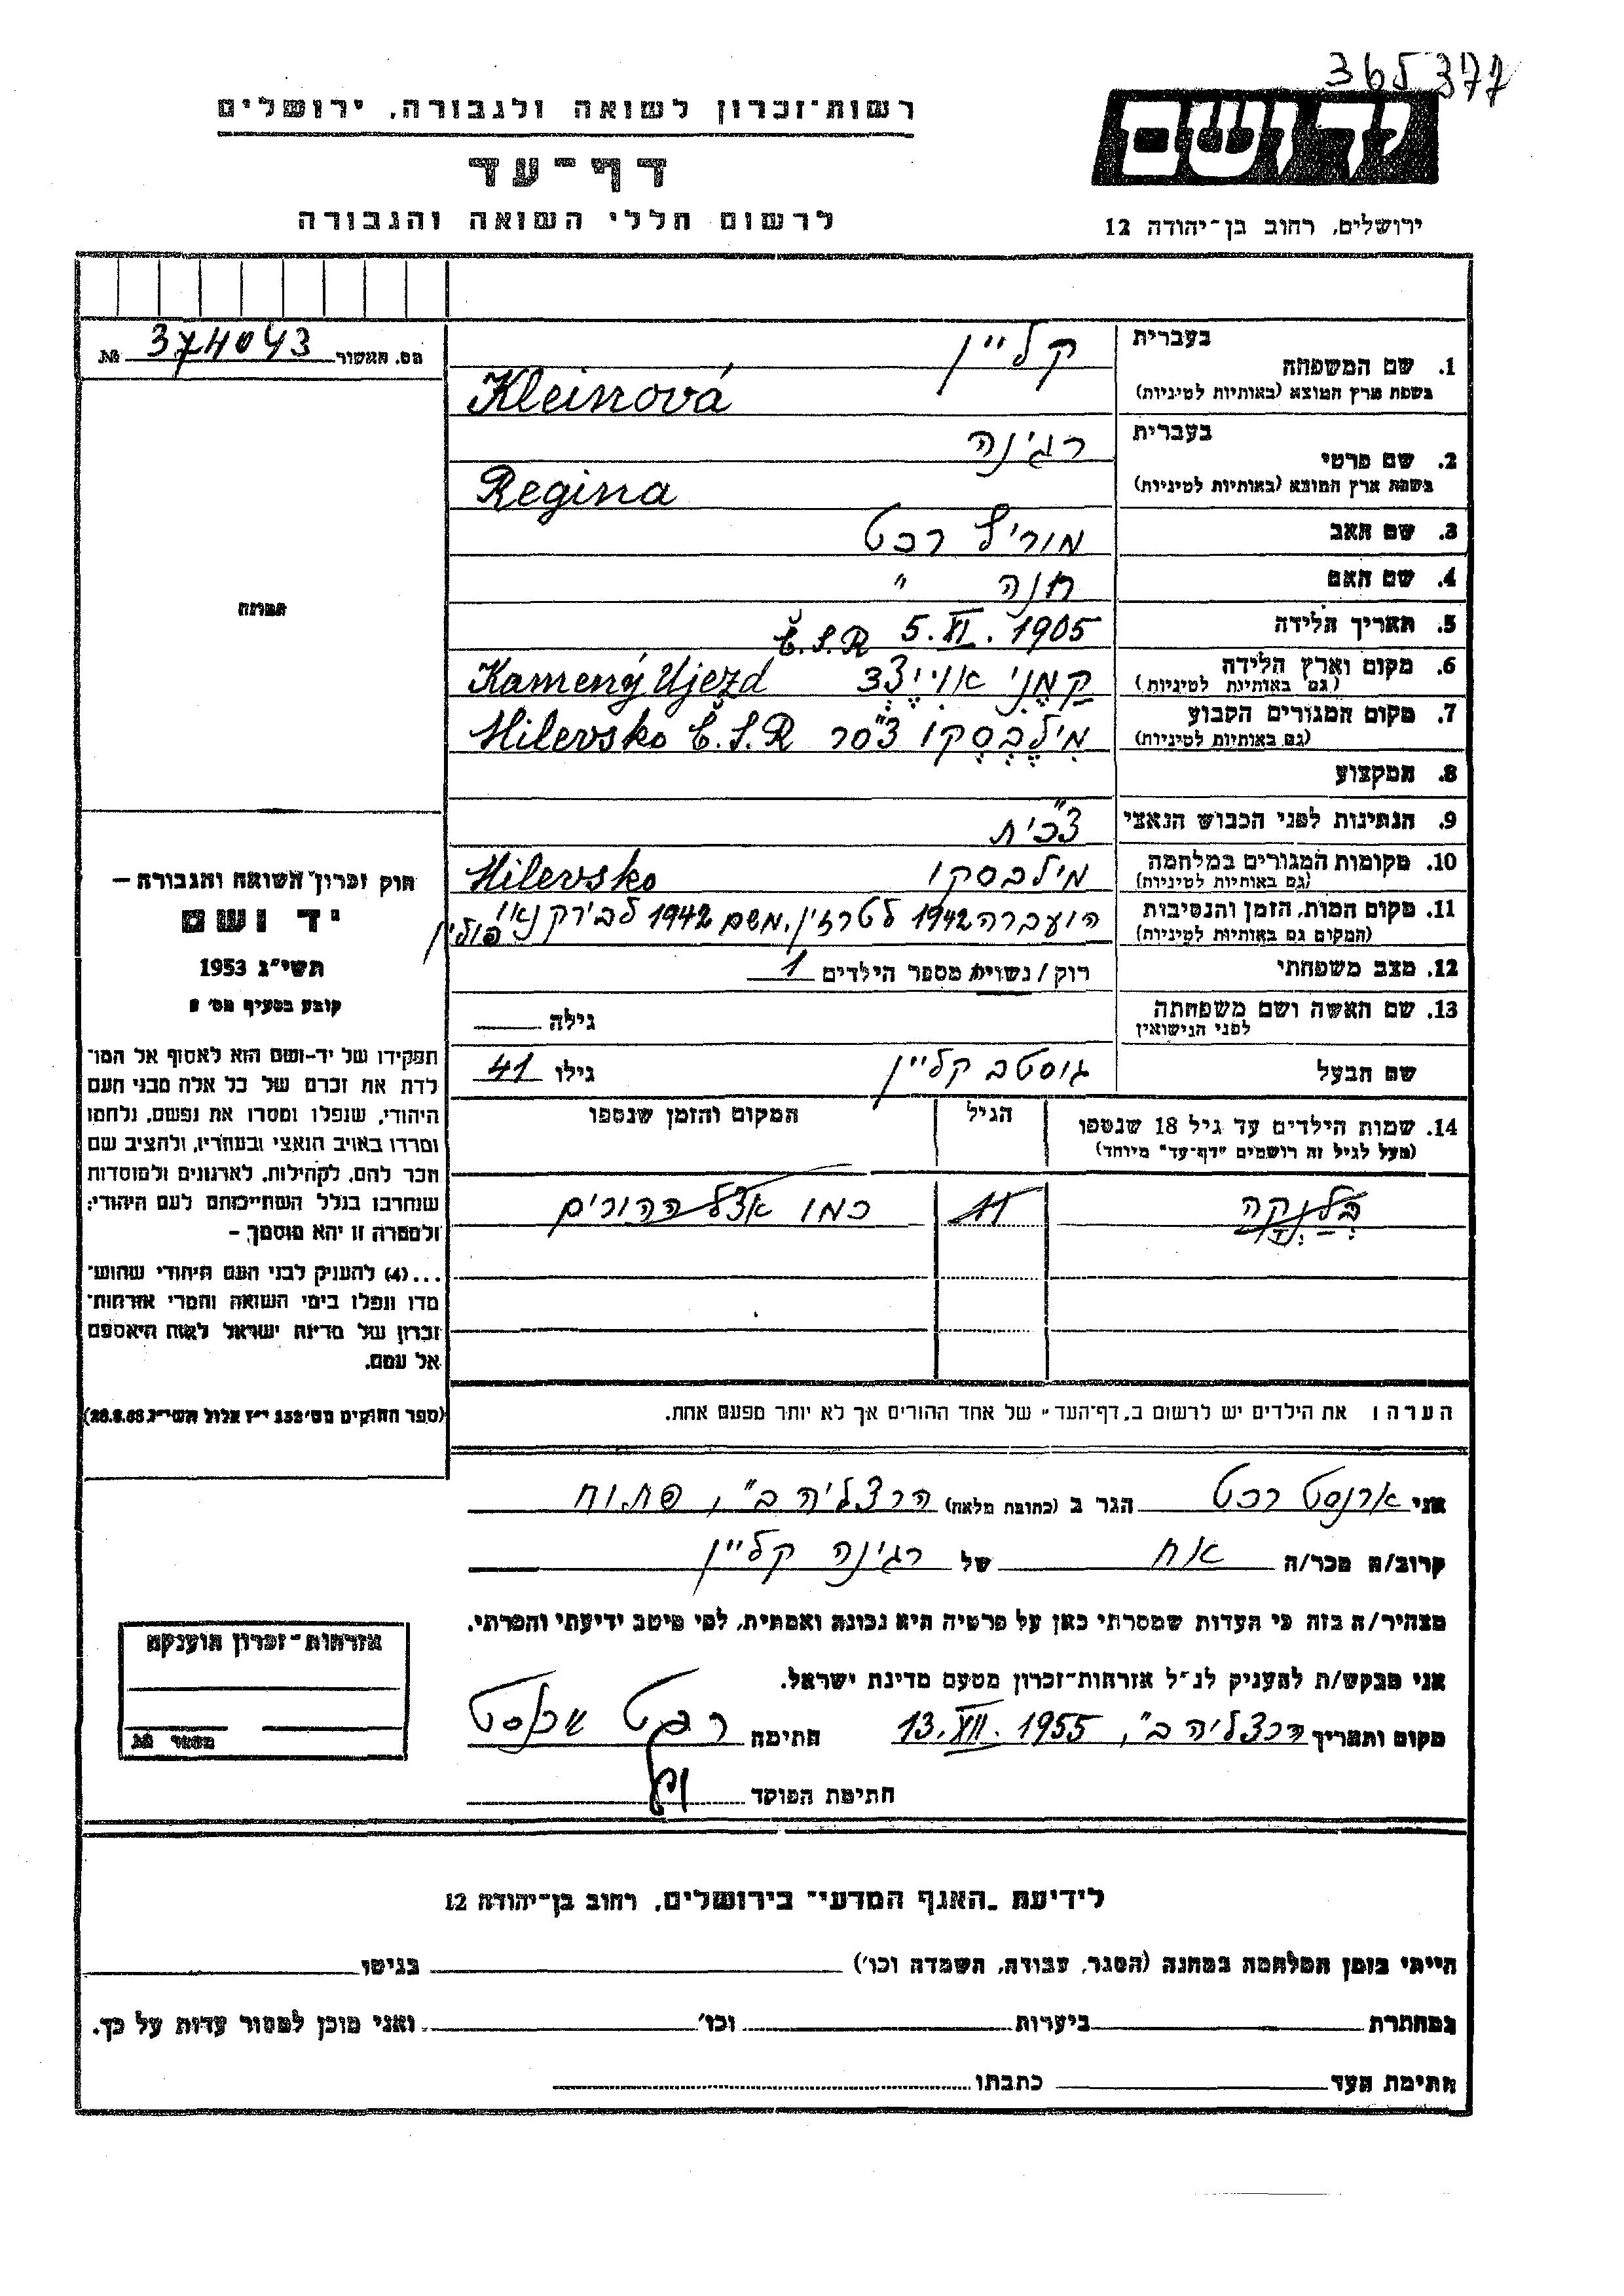 365377
רשות־זכרון לשואה ולגבורה, ירושלים
דף־עד
לרשום חללי השואה והגבורה
יד ושם
ירושלים, רחוב בן־יהודה 12
מס. האשור 374043 №
1. שם המשפחה
בעברית
קליין
בשפת ארץ המוצא (באותיות לטיניות)
Kleinová
2. שם פרטי
בעברית
רגינה
בשפת ארץ המוצא (באותיות לטיניות)
Regina
3. שם האב
מוריץ רכט
4. שם האם
חנה "
5. תאריך הלידה
5. XI. 1905
6. מקום וארץ הלידה
(גם באותיות לטיניות)
Kamený Ujezd Č.S.R
7. מקום המגורים הקבוע
(גם באותיות לטיניות)
מִילֶבְסְקוֹ צ'סר Milevsko Č.S.R
8. המקצוע
9. הנתינות לפני הכבוש הנאצי
צ'כית
10. מקומות המגורים במלחמה
(גם באותיות לטיניות)
מילבסקו Milevsko
11. מקום המות, הזמן והנסיבות
(המקום גם באותיות לטיניות)
הועברה 1942 לטרזין, משם 1942 לבירקנאו פולין
12. מצב משפחתי
רוק/נשוי/ה מספר הילדים 1
13. שם האשה ושם משפחתה
לפני הנישואין
גילה
שם הבעל
גוסטב קליין גילו 41
14. שמות הילדים עד גיל 18 שנספו
(מעל לגיל זה רושמים "דף־עד" מיוחד)
הגיל
המקום והזמן שנספו
11
כמו אצל ההורים
הערה: את הילדים יש לרשום ב„דף־העד" של אחד ההורים אך לא יותר מפעם אחת.
התמונה
חוק זכרון השואה והגבורה —
יד ושם
תשי"ג 1953
קובע בסעיף מס'
תפקידו של יד־ושם הוא לאסוף אל המו־
לדת את זכרם של כל אלה מבני העם
היהודי, שנפלו ומסרו את נפשם, נלחמו
ומרדו באויב הנאצי ובעוזריו, ולהציב שם
וזכר להם, לקהילות, לארגונים ולמוסדות
שנחרבו בגלל השתייכותם לעם היהודי;
ולמטרה זו יהא מוסמך —
...(4) להעניק לבני העם היהודי שהוש־
מדו ונפלו בימי השואה והמרי אזרחות־
זכרון של מדינת ישראל לאות היאספם
אל עמם.
(ספר החוקים מס' 132 י"ז אלול תשי"ג
אני ארנסט רכט הגר ב (כתובת מלאה) הרצליה ב', פתוח
קרוב/ה מכר/ה אח של רגינה קליין
מצהיר/ה בזה כי העדות שמסרתי כאן על פרטיה היא נכונה ואמתית, לפי מיטב ידיעתי והכרתי.
אני מבקש/ת להעניק לנ"ל אזרחות־זכרון מטעם מדינת ישראל.
מקום ותאריך הרצליה ב', 13.XII.1955 חתימה רכט ארנסט
חתימת הפוקד
אזרחות־זכרון הוענקה
№
לידיעת „האגף המדעי" בירושלים, רחוב בן־יהודה 12
הייתי בזמן המלחמה במחנה (הסגר, עבודה, השמדה וכו') בגיטו
במחתרת ביערות וכו' ואני מוכן למסור עדות על כך.
חתימת העד כתבתו